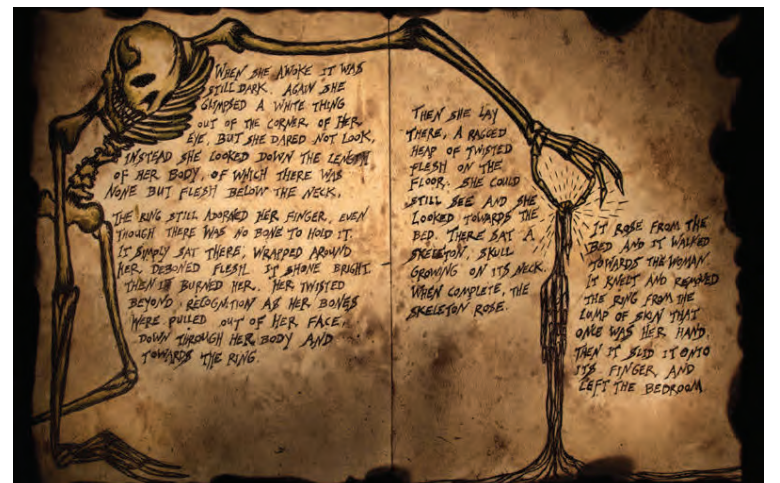 WHEN SHE AWOKE IT WAS
STILL DARK. AGAIN SHE
GLIMPSED A WHITE THING
OUT OF THE CORNER OF HER
EYE, BUT SHE DARED NOT LOOK,
INSTEAD SHE LOOKED DOWN THE LENGTH
OF HER BODY, OF WHICH THERE WAS
NONE BUT FLESH BELOW THE NECK.
THE RING STILL ADORNED HER FINGER, EVEN
THOUGH THERE WAS NO BONE TO HOLD IT.
IT SIMPLY SAT THERE, WRAPPED AROUND
HER DEBONED FLESH. IT SHONE BRIGHT.
THEN IT BURNED HER. HER TWISTED
BEYOND RECOGNITION AS HER BONES
WERE PULLED OUT OF HER FACE,
DOWN THROUGH HER BODY AND
TOWARDS THE RING.
THEN SHE LAY
THERE, A RAGGED
HEAP OF TWISTED
FLESH ON THE
FLOOR. SHE COULD
STILL SEE AND SHE
LOOKED TOWARDS THE
BED. THERE SAT A
SKELETON, SKULL
GROWING ON ITS NECK.
WHEN COMPLETE, THE
SKELETON ROSE.
IT ROSE FROM THE
BED AND IT WALKED
TOWARDS THE WOMAN.
IT KNELT AND REMOVED
THE RING FROM THE
LUMP OF SKIN THAT
ONCE WAS HER HAND.
THEN IT SLID IT ONTO
ITS FINGER, AND
LEFT THE BEDROOM